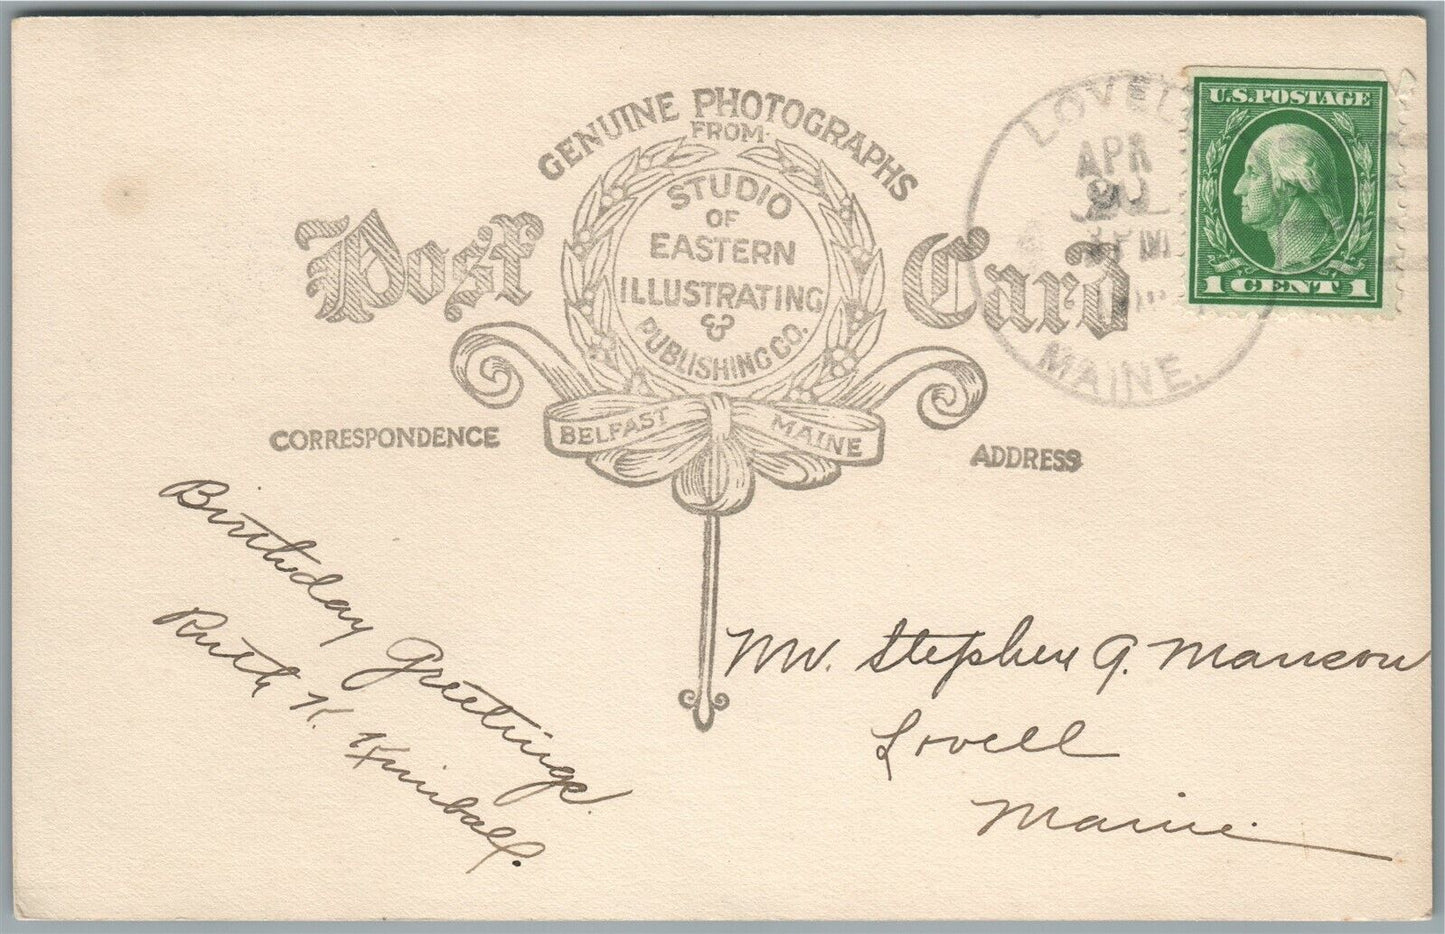 GENUINE PHOTOGRAPHS
FROM
STUDIO
OF
EASTERN
ILLUSTRATING
&
PUBLISHING CO.
BELFAST MAINE
Post Card
CORRESPONDENCE
ADDRESS
LOVELL
APR
PM
MAINE.
U.S.POSTAGE
1 CENT 1
Birthday Greetings.
Ruth K. Kimball.
Mr. Stephen A. Manson
Lovell
Maine.